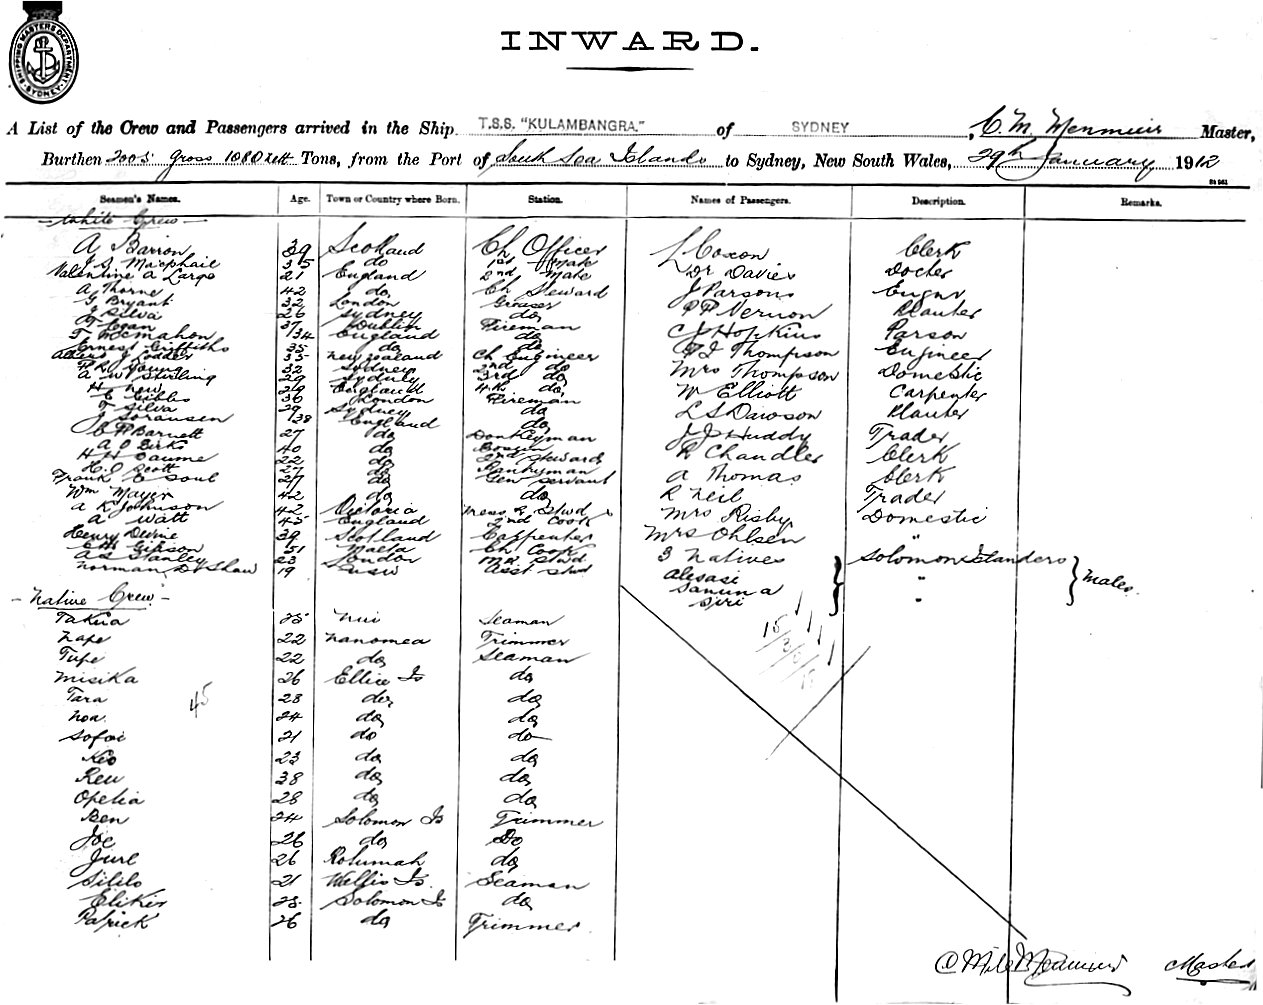 SHIPPING MASTERS DEPARTMENT SYDNEY
INWARD.
A List of the Crew and Passengers arrived in the Ship T.S.S. "KULAMBANGRA." of SYDNEY, C. M. Menmuir Master,
Burthen 2005 gross 1080 nett Tons, from the Port of South Sea Islands to Sydney, New South Wales, 29th January 1912
Seamen's Names. Age. Town or Country where Born. Station. Names of Passengers. Description. Remarks.
White Crew
A Barron 39 Scotland Ch Officer L Coxon Clerk
J S Macphail 35 do 1st Mate Dr Davies Docter
Valentine A Large 21 England 2nd Mate
A Thorne 42 do Ch Steward J Parsons Engnr
G Bryant 32 London Greaser P P Vernon Planter
J Silva 26 Sydney do
Egan 37 Dublin Fireman C J Hopkins Parson
T McMahon 34 England do
Ernest Griffiths 35 do do Thompson Engineer
Albert J Lodder 35 New Zealand Ch Engineer
Young 32 Sydney 2nd do Mrs Thompson Domestic
A W Stirling 29 Sydney 3rd do
H New 29 England 4th do W Elliott Carpenter
E Gibbs 36 London Fireman
F Silva 29 Sydney do L S Dawson Planter
J Soransen 38 England do
Barnett 27 do Donkeyman J J Huddy Trader
A O Birks 40 do Bossun
H H Daume 22 do 2nd Steward R Chandler Clerk
H. J Scott 27 do Pantryman
Frank E Soul 27 do Gen servant A Thomas Clerk
Wm Mayer 42 do do R Neil Trader
A K Johnson 42 Victoria Mess R Stwd
A Watt 45 England 2nd Cook Mrs Risby Domestic
Henry Devine 39 Scotland Carpenter Mrs Ohlsen "
Gipson 51 Malta Ch Cook
A S Stanley 23 London Md Stwd 3 Natives Solomon Islanders
Norman D Shaw 19 NSW Asst Stwd Alesasi " Males.
Samuna "
Siri
Native Crew
Takua 25 Nui Seaman
Nape 22 Nanomea Trimmer
Tupe 22 do Seaman
Misika 26 Ellice Is do
Tara 28 do do
45
Noa 24 do do
Sofoi 21 do do
Kio 23 do do
Reu 38 do do
Opelia 28 do do
Ben 24 Solomon Is Trimmer
Joe 26 do Do
Jure 26 Rotumah do
Sililo 21 Wallis Is. Seaman
Elikir 23 Solomon Is do
Patrick 26 do Trimmer
15/3/0/12
Menmuir Master